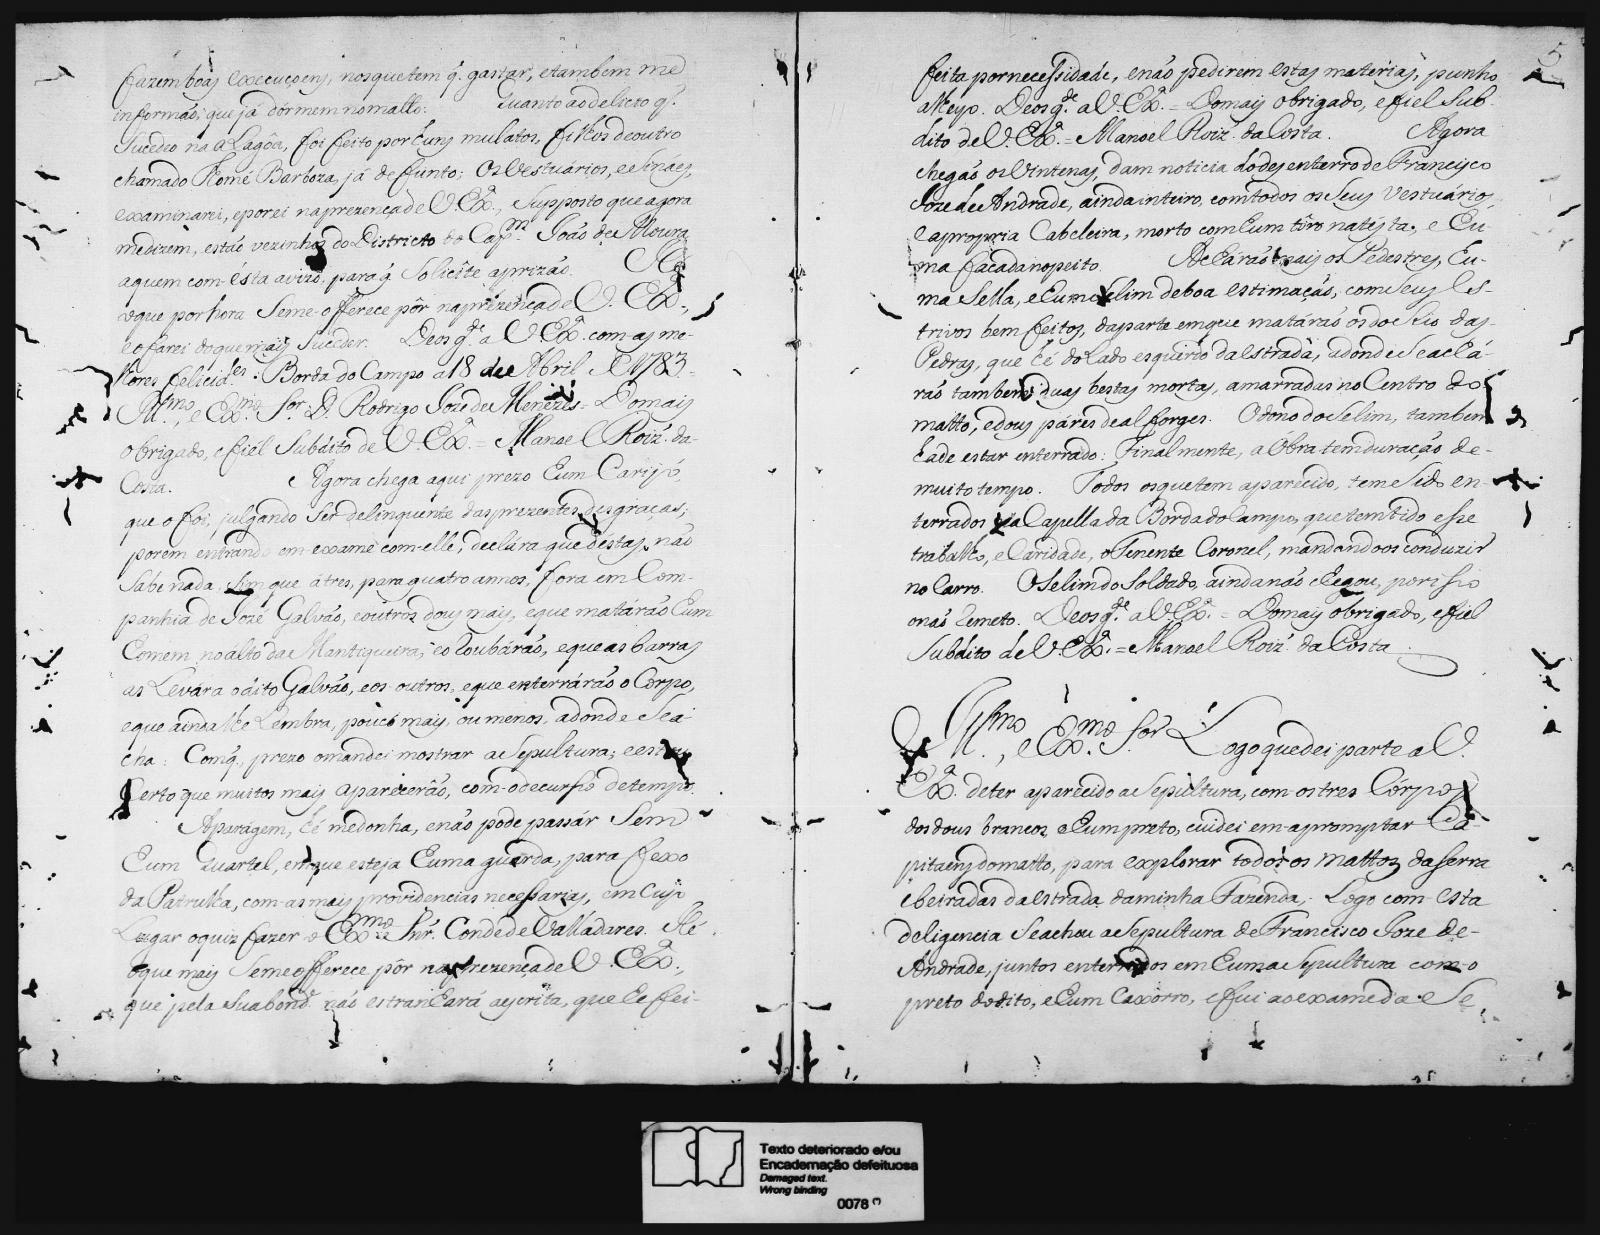 fazem boas execuçoens, nos que tem q̃ gastar, e tambem me
informão, que já dormem no matto. Quanto ao delicto q̃
Sucedeo na a Lagôa, foi feito por huns mulatos, filhos de outro
chamado Romé Barboza, já defunto; os Vestuarios, e Sinaes,
examinarei, e porei na prezença de V. Exª, Supposto que agora
me dizem, estão vezinhos do Districto do Capᵐ João de Moura
a quem com esta avizo, para q̃ Solicîte a prizão. He
o que por hora Seme offerece pôr na prezença de V. Exª,
e o farei do que mais Suceder. Deos g.ᵈᵉ a V Exª com as me-
lhores felicid.ᵉˢ: Borda do Campo a 18 de Abril de 1783 =
Ill.ᵐᵒ, e Ex.ᵐᵒ Sor. D. Rodrigo Joze de Menezes = Do mais
obrigado, e fiel Subdito de V. Exª = Manoel Roiz' da
Costa. Agora chega aqui prezo hum Carijó,
que o foi, julgando Ser delinquente das prezentes desgraças;
porem entrando em exame com elle, declára que destas, não
Sabe nada, Sim que á tres, para quatro annos, fora em Com-
panhia de Jozé Galvão, e outros dous mais, e que matárão hum
homem no alto da Mantiqueira, e o roubárão, e que as barras
as Levára o dito Galvão, e os outros, e que enterrárão o Corpo,
e que ainda lhe Lembra, pouco mais, ou menos, adonde Sea
cha: Com q̃, prezo o mandei mostrar a Sepultura; e estou
Certo que muitos mais aparecerão, com o decurso de tempo.
A paragem, hé medonha, e não pode passár Sem
hum Quartel, em que esteja huma guarda, para fexo
da Patrulha, com as mais providencias necessarias, em cujo
Lugar o quiz fazer o Ex.ᵐᵒ Snr. Conde de Valladares. Hé
o que mais Seme offerece pôr na prezença de V. Exª,
que pela Sua bond.ᵉ não estranhará a escrita, que he fei-
5
feita por necessidade, e não pedirem estas materias, punho
alheyo. Deos g.ᵈᵉ a V. Exª = Do mais obrigado, e fiel Sub-
dito de V. Exª. = Manoel Roiz' da Costa. Agora
chegão os Vintenas, dam noticia do desenterro de Francisco
Joze de Andrade, ainda inteiro, com todos os Seus Vestuários
e a propria Cabeleira, morto com hum tiro na testa, e hu-
ma facada no peito. Acharão mais os Pedestres, hu-
ma Sella, e hum Selim de boa estimação, com Seus Es-
trivos bem feitos, da parte em que matárão os do Rio das
Pedras, que hé do Lado esquerdo da estrada, adonde Se achá-
rão tambem duas bestas mortas, amarradas no Centro do
matto, e dous páres de alforges. O dono do Selim, tambem
hade estar enterrado: Finalmente, a Obra tem duração de
muito tempo. Todos os que tem aparecido, tem Sido en-
terrados na Capella da Borda do Campo, que tem tido esse
trabalho, e Caridade, o Tenente Coronel, mandando os conduzir
no Carro. O Selim do Soldado, ainda não chegou, por isso
o não remeto. Deos g.ᵈᵉ a V. Exª. = Do mais obrigado, e fiel
Subdito de V. Exª. = Manoel Roiz' da Costa.
Ill.ᵐᵒ, e Ex.ᵐᵒ Sor' Logo que dei parte a V.
Exª de ter aparecido a Sepultura, com os tres Córpos
dos dous brancos e hum preto, cuidei em apromptar Ca-
pitaens do matto, para explorar todos os mattos da Serra
e beiradas da estrada da minha Fazenda. Logo com esta
deligencia Se achou a Sepultura de Francisco Joze de
Andrade, juntos enterrados em huma Sepultura com o
preto do dito, e hum Caxorro, e fui ao exame da Se
Texto deteriorado e/ou
Encadernação defeituosa
Damaged text.
Wrong binding
0078